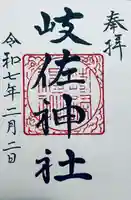 奉拝
岐佐神社
令和七年二月二日